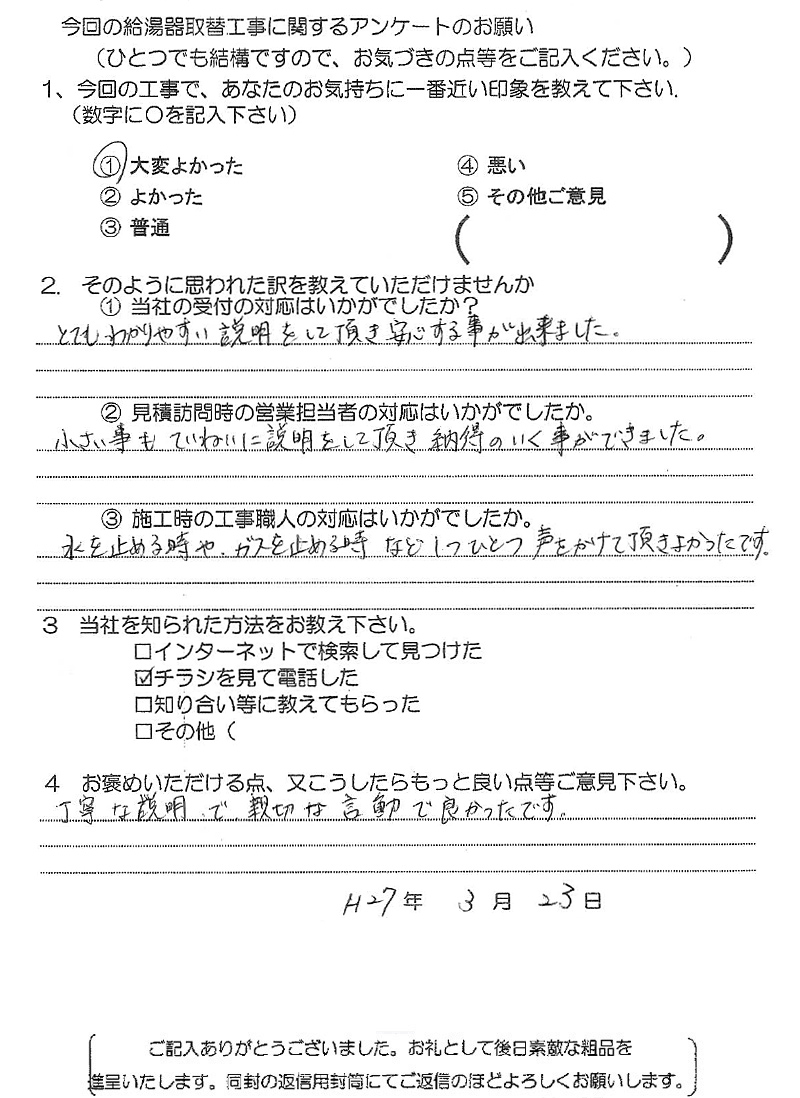 今回の給湯器取替工事に関するアンケートのお願い
（ひとつでも結構ですので、お気づきの点等をご記入ください。）
1、今回の工事で、あなたのお気持ちに一番近い印象を教えて下さい.
（数字に〇を記入下さい）
① 大変よかった
④ 悪い
② よかった
⑤ その他ご意見
③ 普通
（ ）
2. そのように思われた訳を教えていただけませんか
① 当社の受付の対応はいかがでしたか？
とてもわかりやすい説明をして頂き安心する事が出来ました。
② 見積訪問時の営業担当者の対応はいかがでしたか。
小さい事もていねいに説明をして頂き納得のいく事ができました。
③ 施工時の工事職人の対応はいかがでしたか。
水を止める時や、ガスを止める時など1つひとつ声をかけて頂きよかったです。
3 当社を知られた方法をお教え下さい。
□インターネットで検索して見つけた
☑チラシを見て電話した
□知り合い等に教えてもらった
□その他（
4 お褒めいただける点、又こうしたらもっと良い点等ご意見下さい。
丁寧な説明、で親切な言動で良かったです。
H27年 3月 23日
ご記入ありがとうございました。お礼として後日素敵な粗品を
進呈いたします。同封の返信用封筒にてご返信のほどよろしくお願いします。